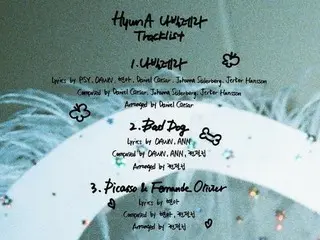 HyunA 나빌레라
Tracklist
1. 나빌레라
Lyrics by PSY, DAWN, 현아, Daniel Caesar, Johanna Söderberg, Jerker Hansson
Composed by Daniel Caesar, Johanna Söderberg, Jerker Hansson
Arranged by Daniel Caesar
2. Bad Dog
Lyrics by DAWN, ANN
Composed by DAWN, ANN,
Arranged by
3. Picasso & Fernande Olivier
Lyrics by 현아
Composed by 현아,
Arranged by